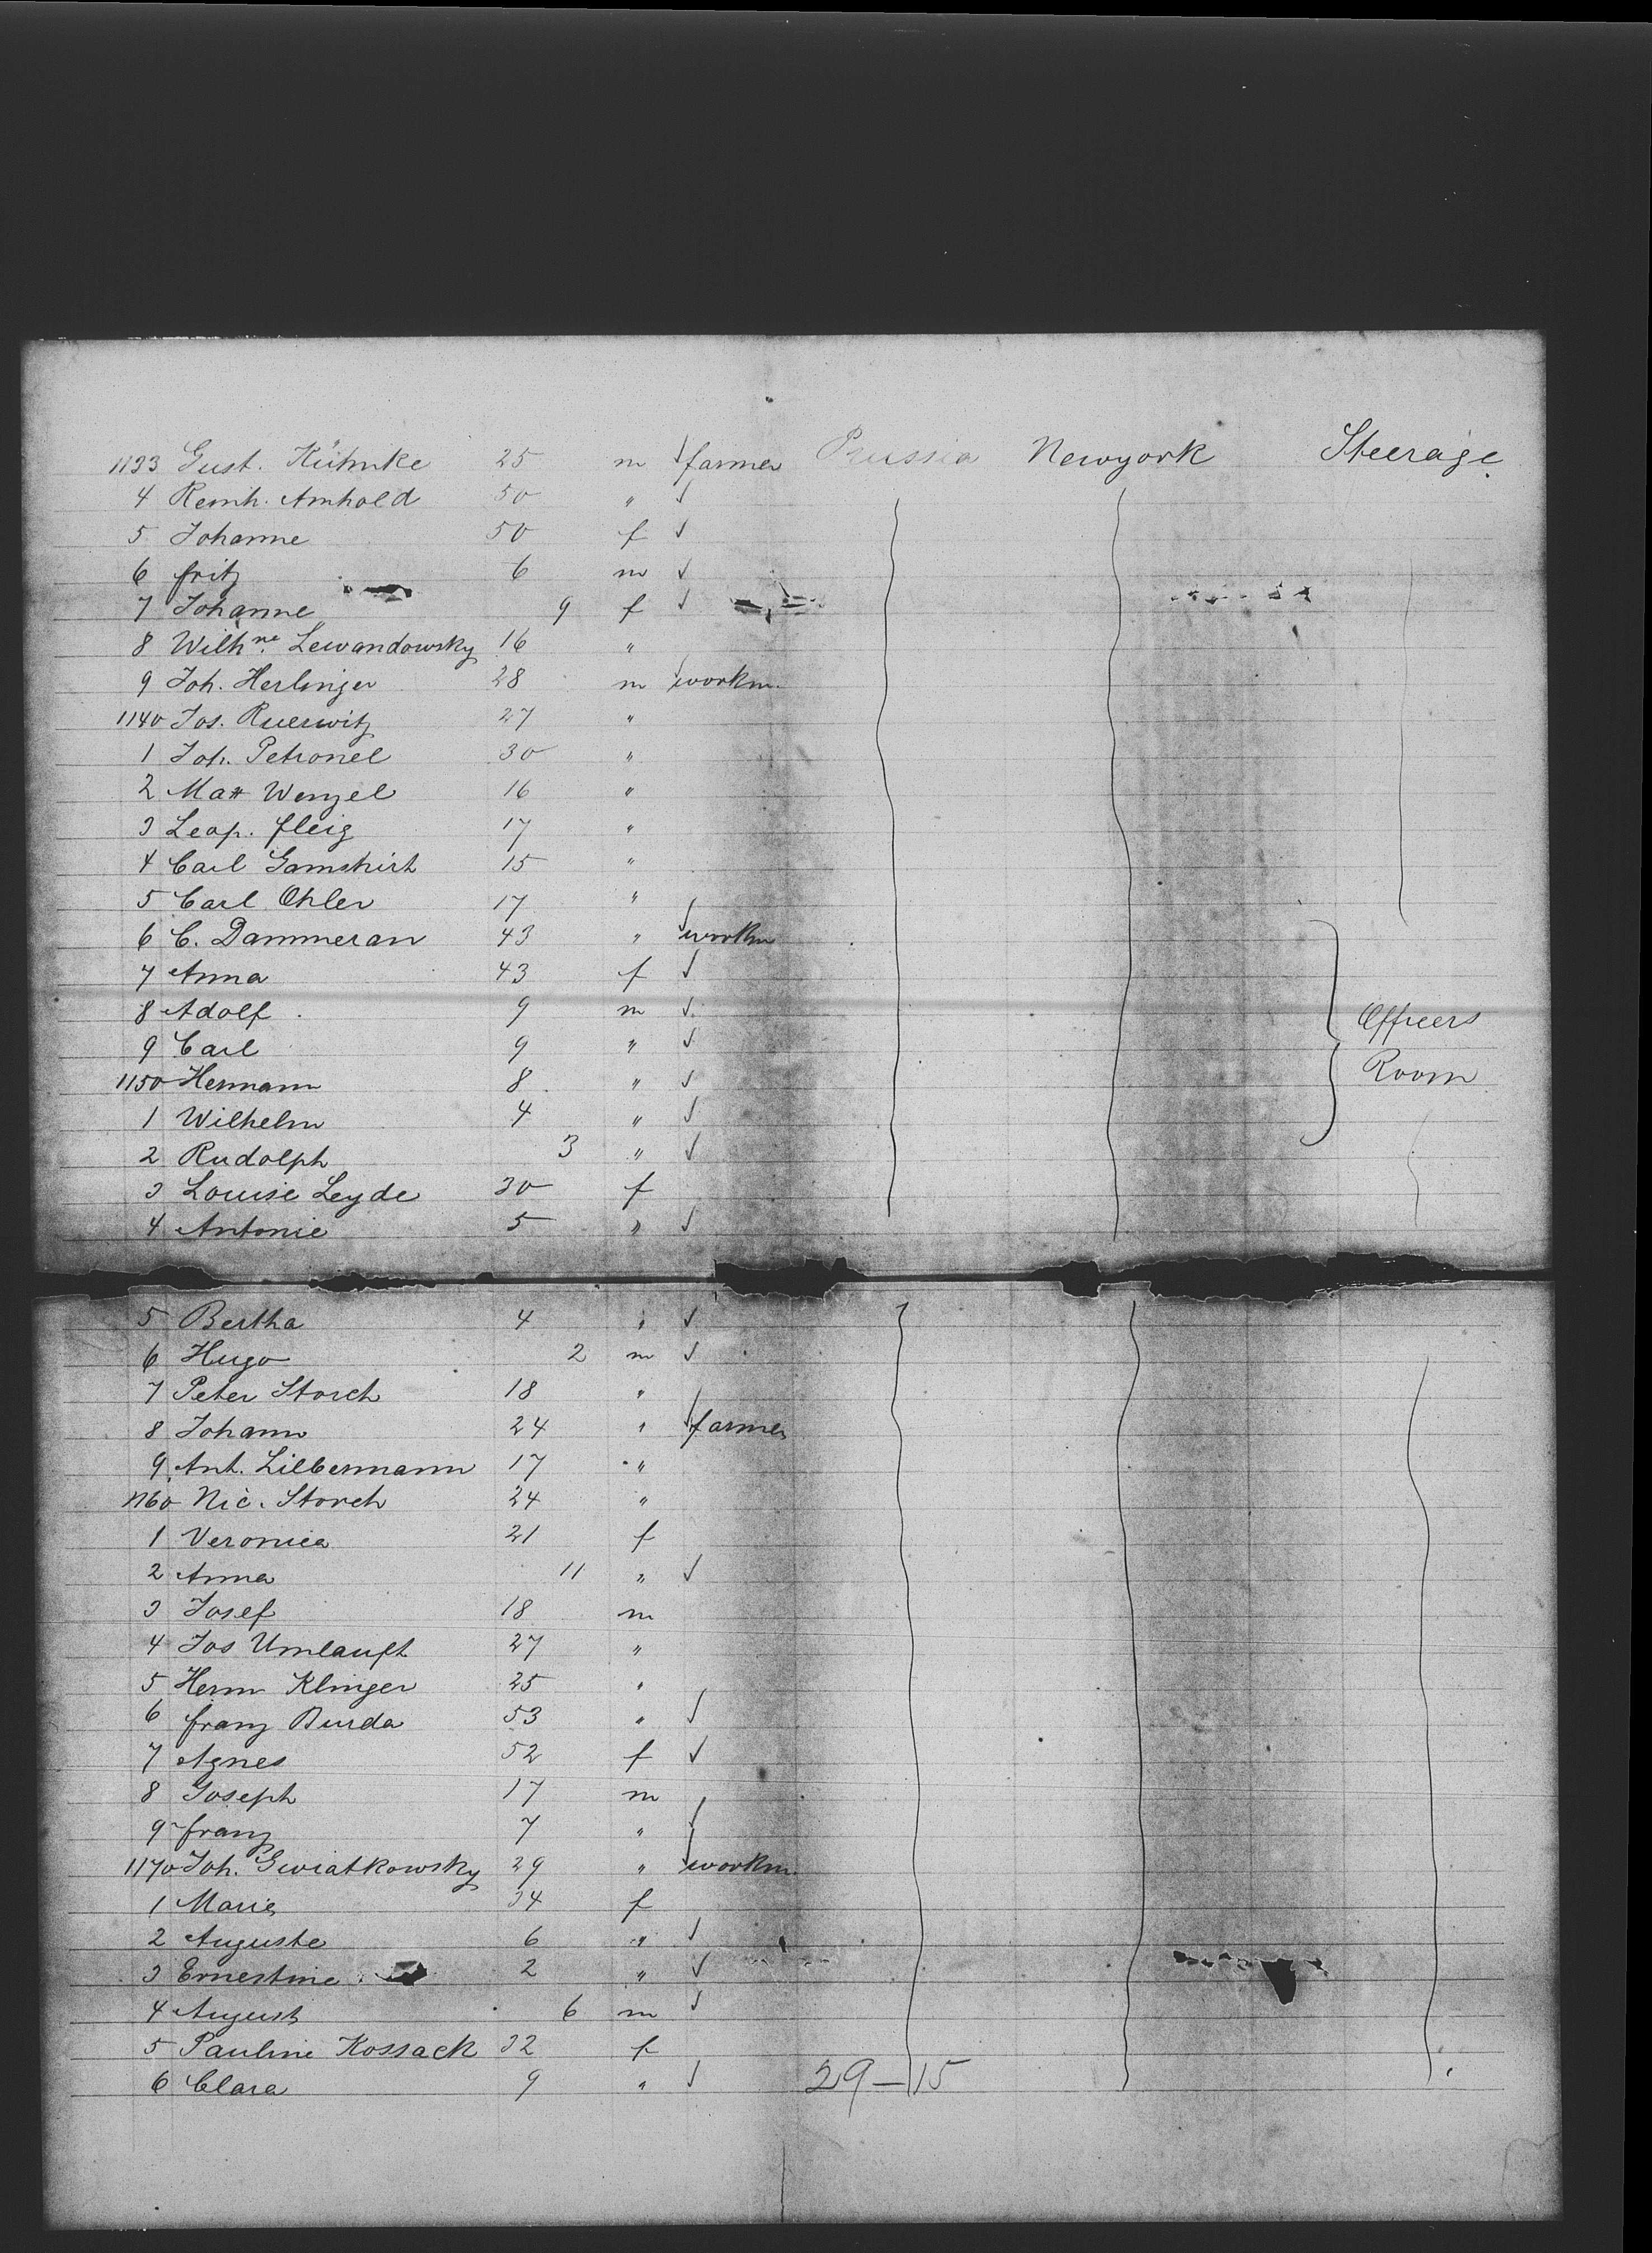 1133 Gust. Kühnke 25 m farmer Prussia Newyork Steerage
4 Reinh. Arnhold 50 " ✓
5 Johanne 50 f ✓
6 fritz 6 m ✓
7 Johanne 9 f ✓
8 Wilhne. Lewandowsky 16 "
9 Joh. Herlinger 28 m workm.
1140 Jos. Ruerwitz 27 "
1 Joh. Petronel 30 "
2 Matt Wenzel 16 "
3 Leop. fleig 17 "
4 Carl Gamshirt 15 "
5 Carl Ohler 17 "
6 C. Dammeran 43 " workm
7 Anna 43 f ✓
8 Adolf 9 m ✓
9 Carl 9 " ✓
Officers
1150 Hermann 8 " ✓
Room
1 Wilhelm 4 " ✓
2 Rudolph 3 " ✓
3 Louise Leyde 30 f
4 Antonie 5 " ✓
5 Bertha 4 " ✓
6 Hugo 2 m ✓
7 Peter Storch 18 "
8 Johann 24 " farmer
9 Ant. Lilbermann 17 "
1160 Nic. Storch 24 "
1 Veronica 21 f
2 Anna 11 " ✓
3 Josef 18 m
4 Jos Umlauft 27 "
5 Herm Klinger 25 "
6 franz Burda 53 " ✓
7 Agnes 52 f ✓
8 Joseph 17 m
9 franz 7 " ✓
1170 Joh. Gwiatkowsky 29 " workm.
1 Marie 34 f
2 Auguste 6 " ✓
3 Ernestine 2 " ✓
4 August 6 m ✓
5 Pauline Kossack 32 f
6 Clara 9 " ✓ 29-15